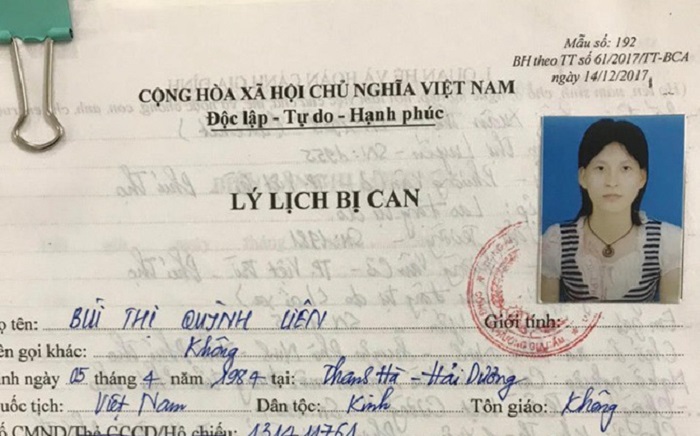 Mẫu số: 192
BH theo TT số 61/2017/TT-BCA
ngày 14/12/2017
CỘNG HÒA XÃ HỘI CHỦ NGHĨA VIỆT NAM
Độc lập - Tự do - Hạnh phúc
LÝ LỊCH BỊ CAN
ọ tên: BÙI THỊ QUỲNH LIÊN Giới tính:
ên gọi khác: Không
inh ngày 05 tháng 4 năm 1984 tại: Thanh Hà - Hải Dương
uốc tịch: Việt Nam Dân tộc: Kinh Tôn giáo: Không
ố CMND/Thẻ CCCD/Hộ chiếu: 131411761